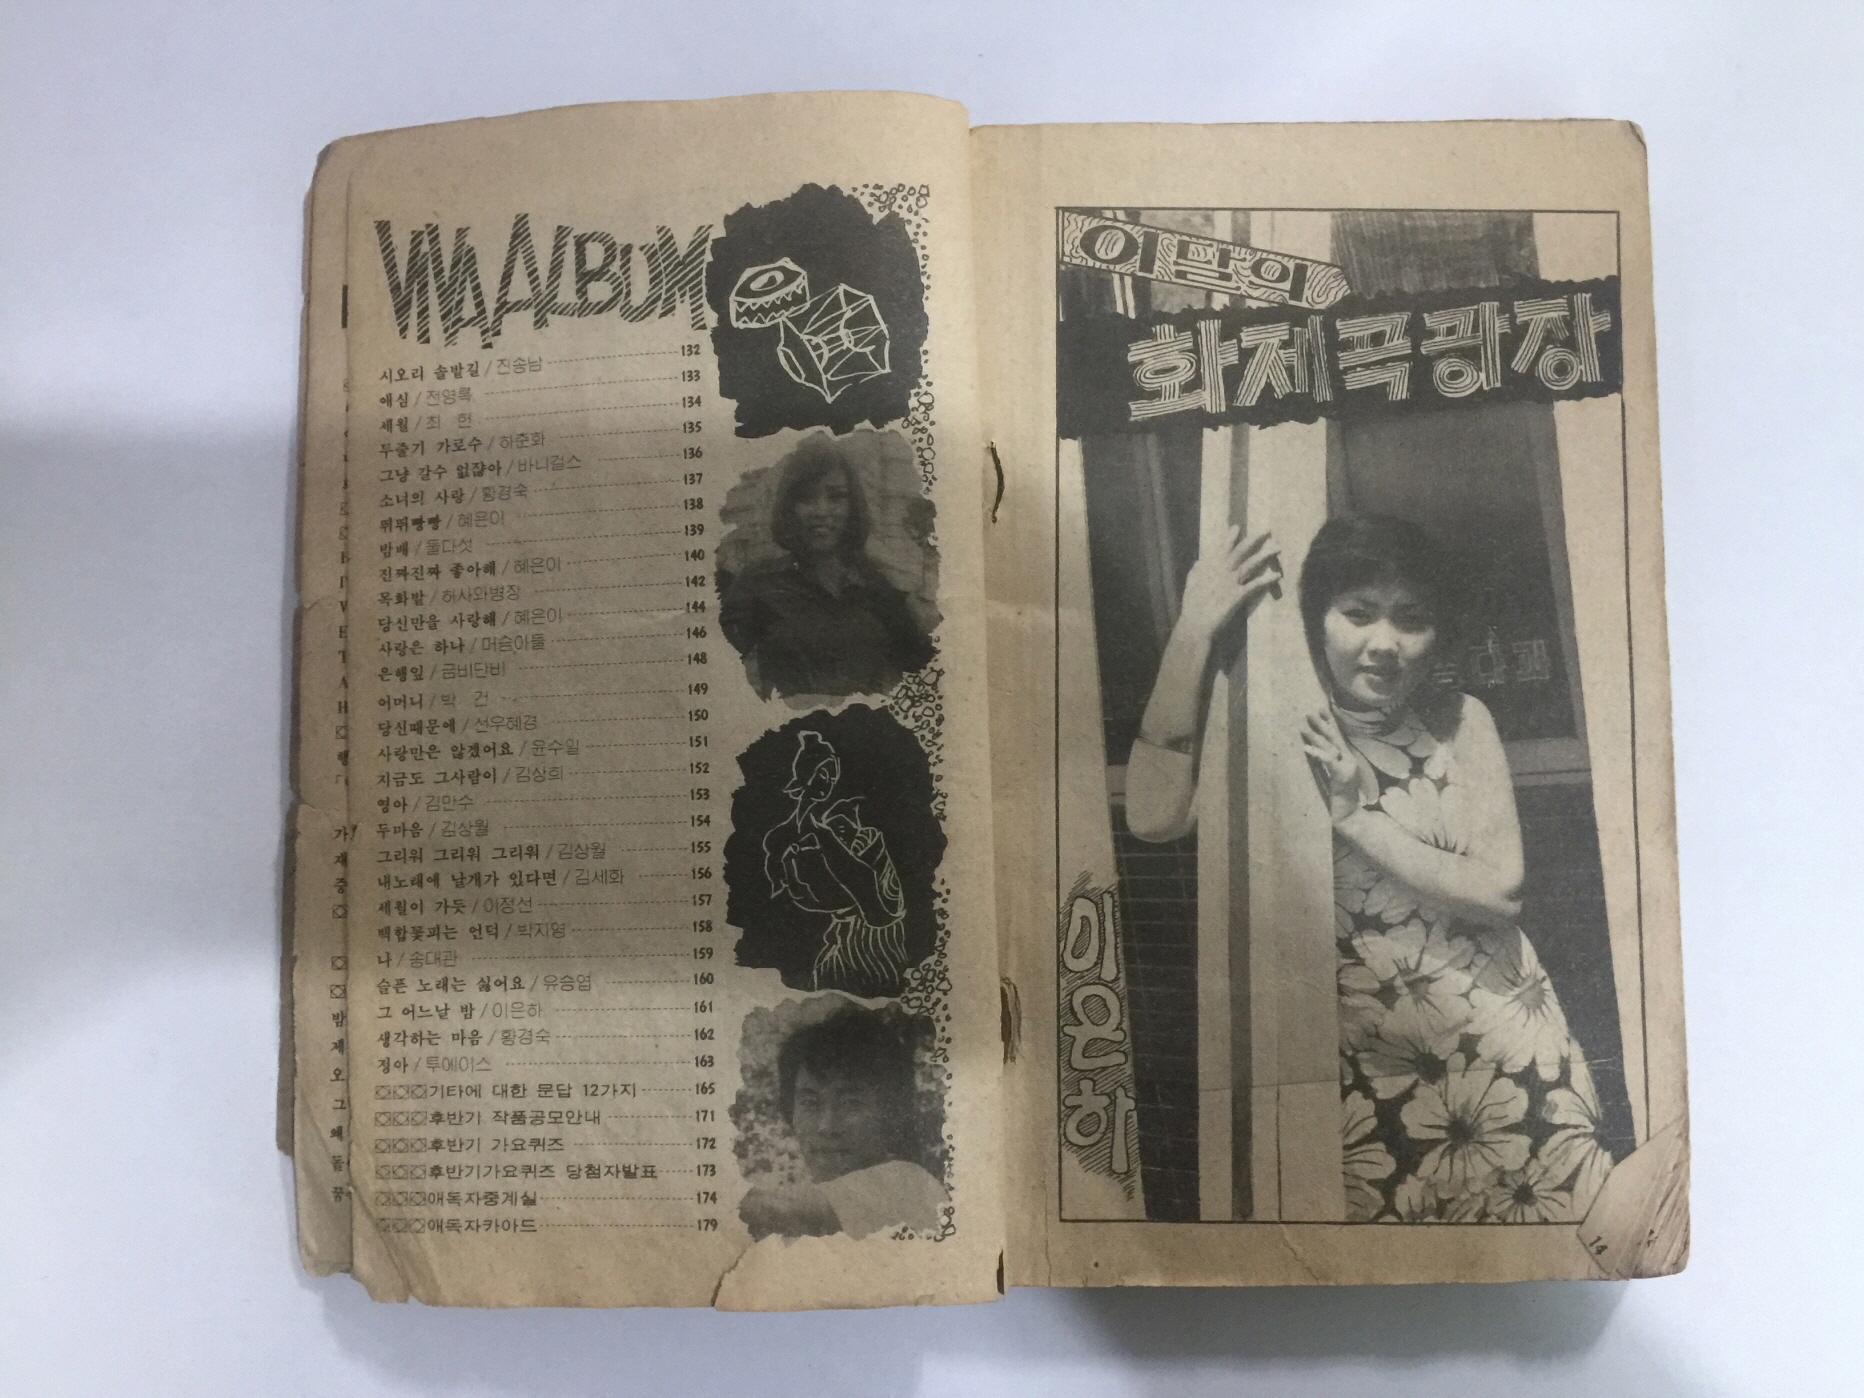 VIVA ALBUM
시오리 솔밭길 / 진송남 132
애심 / 전영록 133
세월 / 최 헌 134
두줄기 가로수 / 하춘화 135
그냥 갈수 없잖아 / 바니걸스 136
소녀의 사랑 / 황경숙 137
뛰뛰빵빵 / 혜은이 138
밤배 / 둘다섯 139
진짜진짜 좋아해 / 혜은이 140
목화밭 / 하사와병장 142
당신만을 사랑해 / 혜은이 144
사랑은 하나 / 머슴아들 146
은행잎 / 금비단비 148
어머니 / 박 건 149
당신때문에 / 선우혜경 150
사랑만은 않겠어요 / 윤수일 151
지금도 그사람이 / 김상희 152
영아 / 김만수 153
두마음 / 김상월 154
그리워 그리워 그리워 / 김상월 155
내노래에 날개가 있다면 / 김세화 156
세월이 가듯 / 이정선 157
백합꽃피는 언덕 / 박지영 158
나 / 송대관 159
슬픈 노래는 싫어요 / 유승엽 160
그 어느날 밤 / 이은하 161
생각하는 마음 / 황경숙 162
정아 / 투에이스 163
기타에 대한 문답 12가지 165
후반기 작품공모안내 171
후반기 가요퀴즈 172
후반기가요퀴즈 당첨자발표 173
애독자중계실 174
애독자카아드 179
이달의
화제곡광장
이은하
14